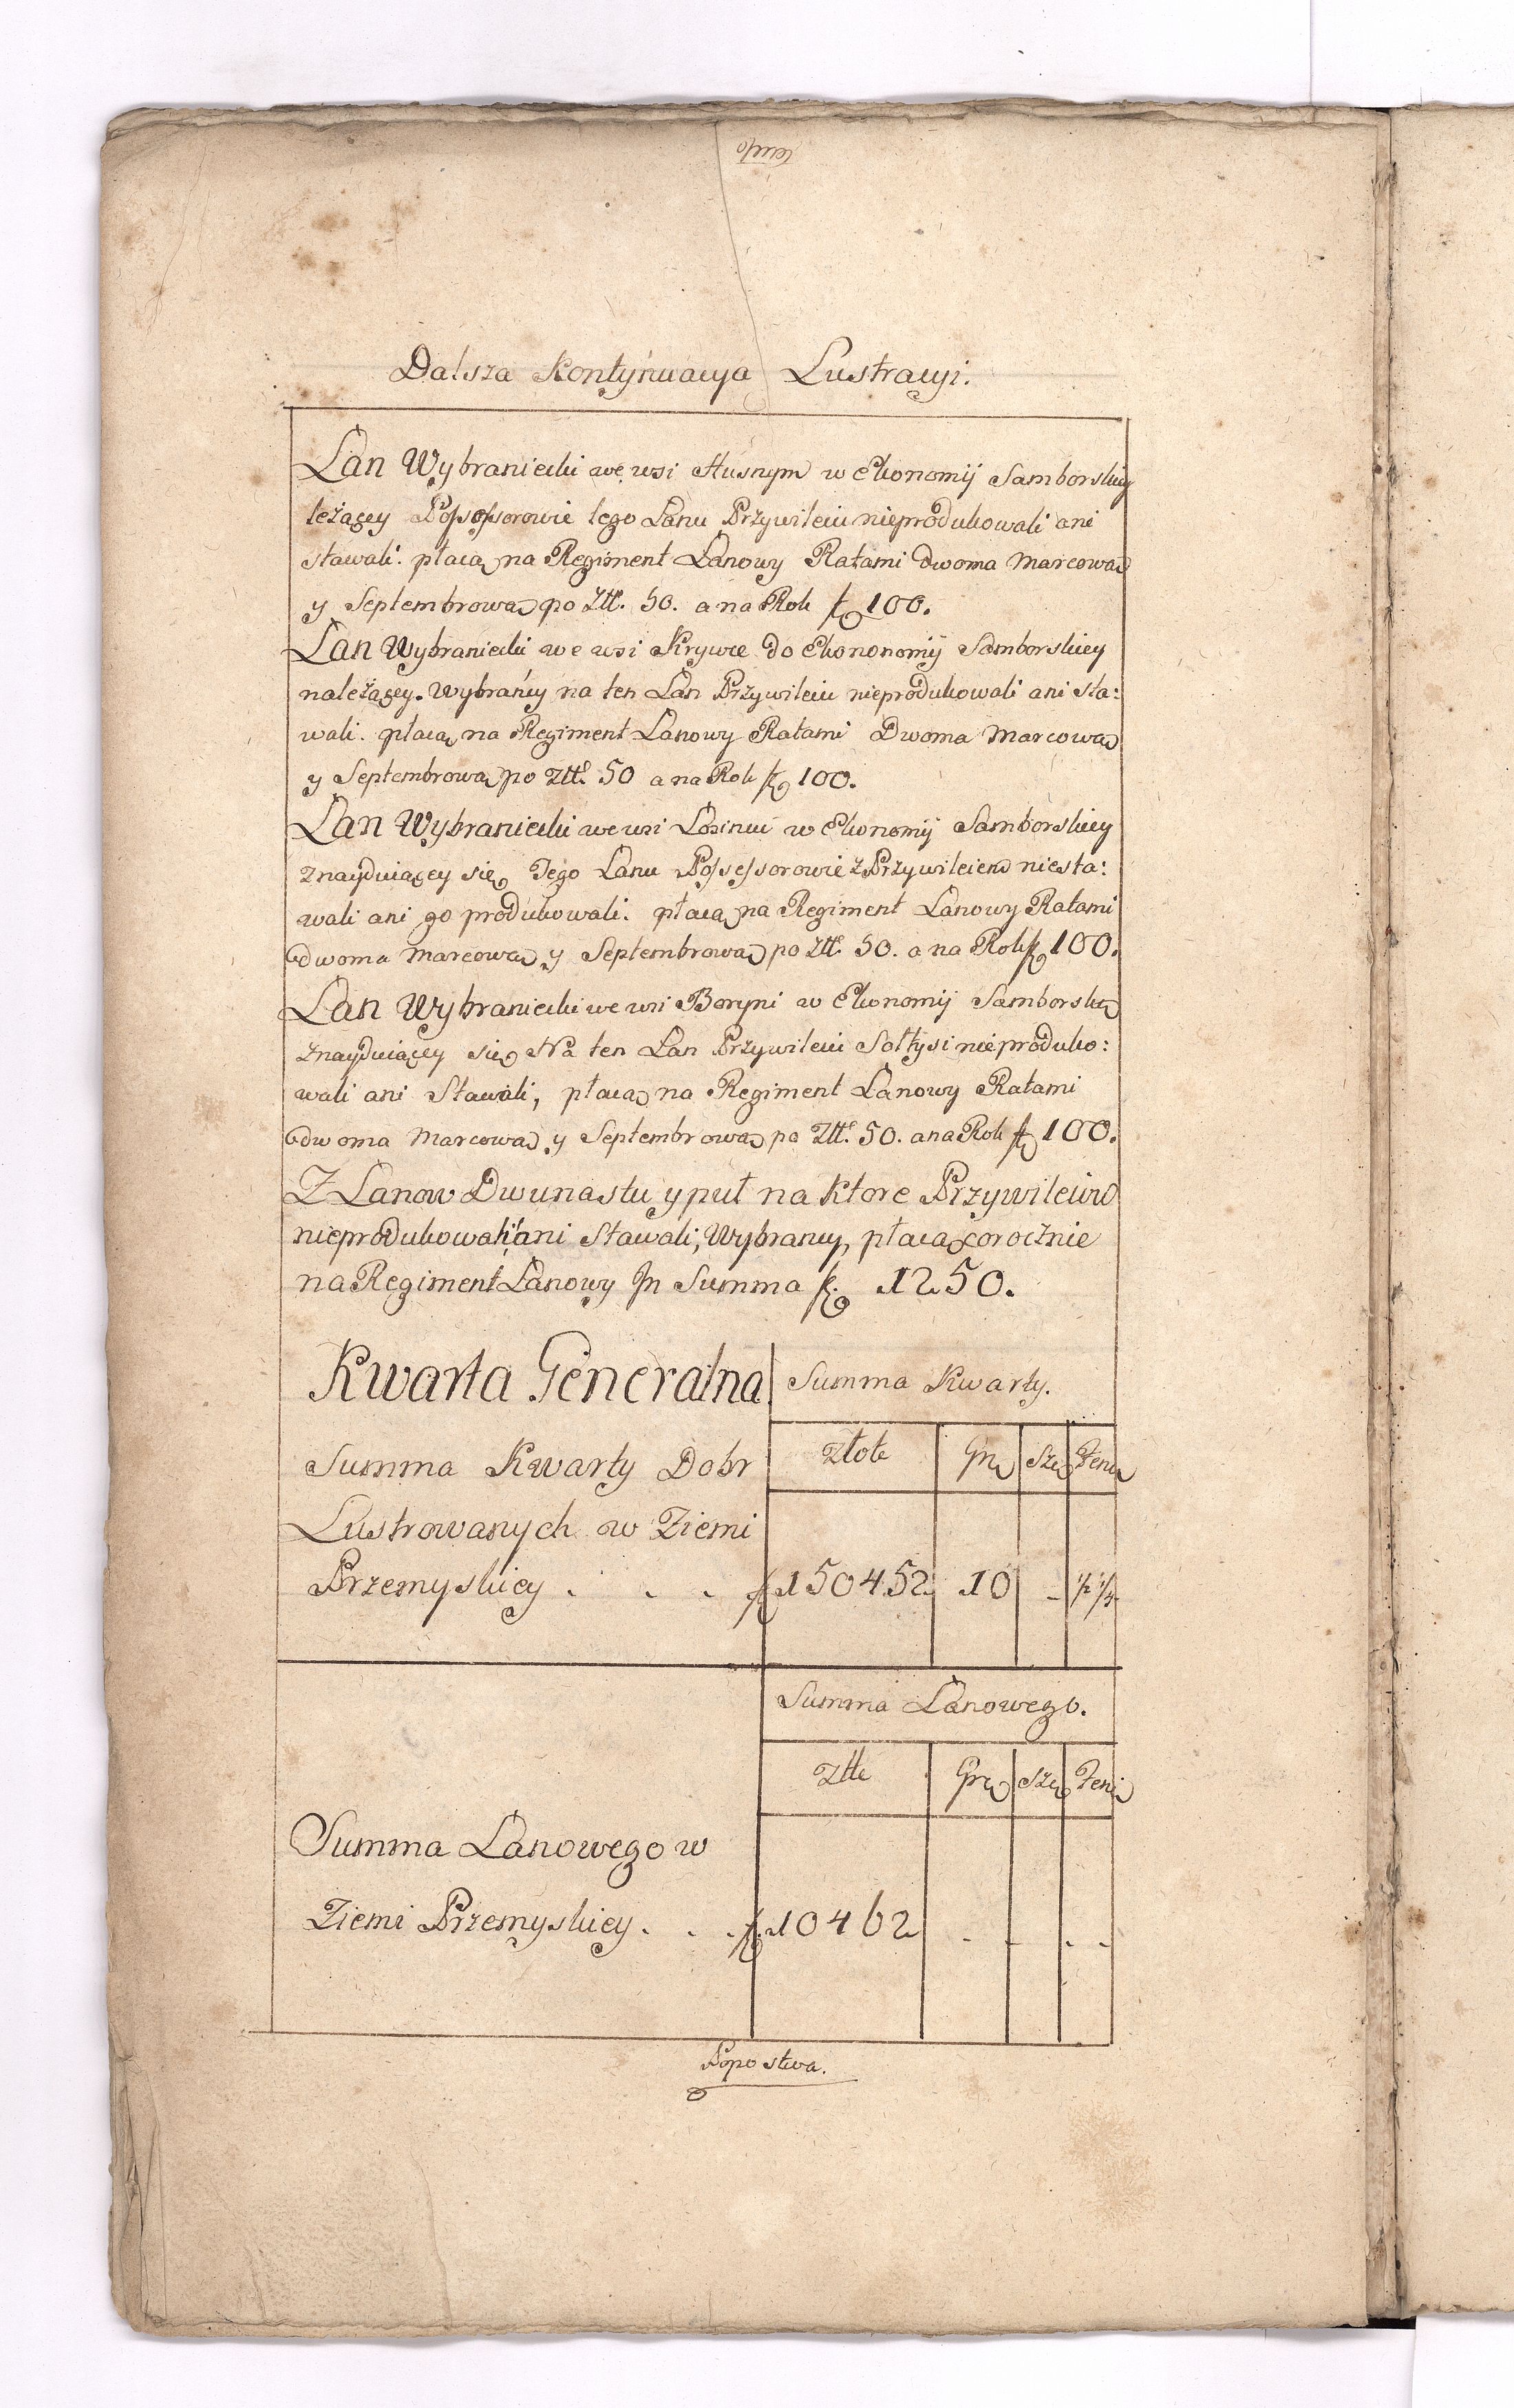 Dalsza Kontynuacya Lustracyi.
Łan Wybraniecki we wsi Husnym w Ekonomij Samborskiey
leżącey Possessorowie tego Łanu Przywileiu nieprodukowali ani
stawali. płacą na Regiment Łanowy Ratami dwoma Marcową
y Septembrową po Ztł. 50. a na Rok f 100.
Łan Wybraniecki we wsi Krywce do Ekononomij Samborskiey
należącey. Wybrańcy na ten Łan Przywileiu nieprodukowali ani sta:
wali. płacą na Regiment Łanowy Ratami Dwoma Marcową
y Septembrową po Ztł. 50 a na Rok f 100.
Łan Wybraniecki we wsi Łosincu w Ekonomij Samborskiey
znayduiącey się, Tego Łanu Possessorowie z Przywileiem niesta:
wali ani go produkowali. płacą na Regiment Łanowy Ratami
dwoma Marcową y Septembrową po Ztł. 50. a na Rok f 100.
Łan Wybraniecki we wsi Boryni w Ekonomij Samborskiey
znayduiącey się Na ten Łan Przywileiu Sołtysi nieproduko:
wali ani Stawali, płacą na Regiment Łanowy Ratami
dwoma Marcową y Septembrową po Ztł. 50. a na Rok f 100.
Z Łanow Dwunastu y puł na ktore Przywileiow
nieprodukowali ani Stawali, Wybrancy, płacą corocznie
na Regiment Łanowy In Summa f. 1250.
Kwarta Generalna
Summa Kwarty.
Złote Gr Sze Feni
Summa Kwarty Dobr
Lustrowanych w Ziemi
Przemyskiey . . . f 150452 10 - 1/2 1/4
Summa Łanowego.
Ztłe Gr Sze Feni
Summa Łanowego w
Ziemi Przemyskiey . . . f. 10462 . - . -